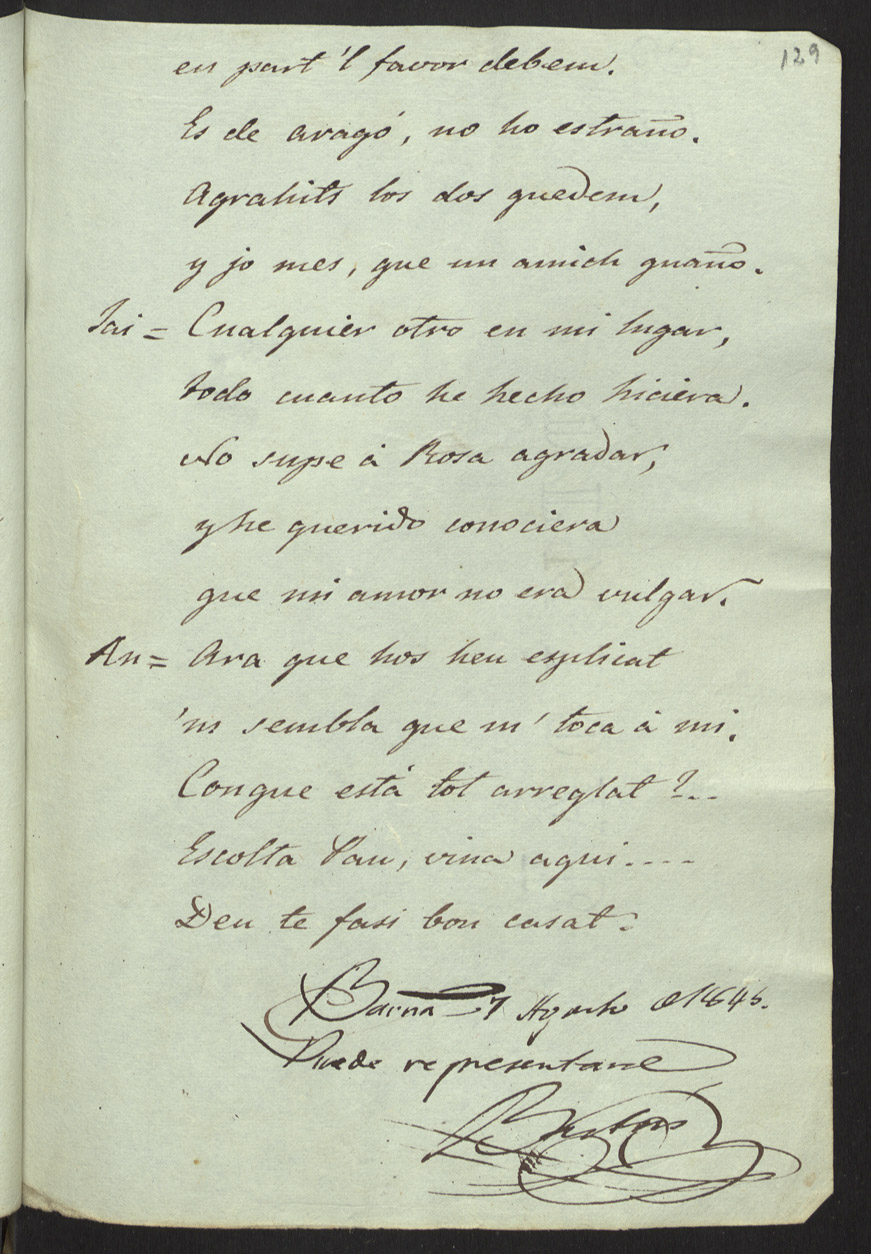 129
en part 'l favor debem.
Es de aragó, no ho estraño.
Agrahits los dos quedem,
y jo mes, que un amich guaño.
Jai = Cualquier otro en mi lugar,
todo cuanto he hecho hiciera.
No supe á Rosa agradar,
y he querido conociera
que mi amor no era vulgar.
An = Ara que hos heu esplicat
'm sembla que m' toca á mi.
Conque está tot arreglat?..
Escolta Pau, vina aqui....
Deu te fasi bon casat.
Barna 27 Agosto 184
Puede representarse